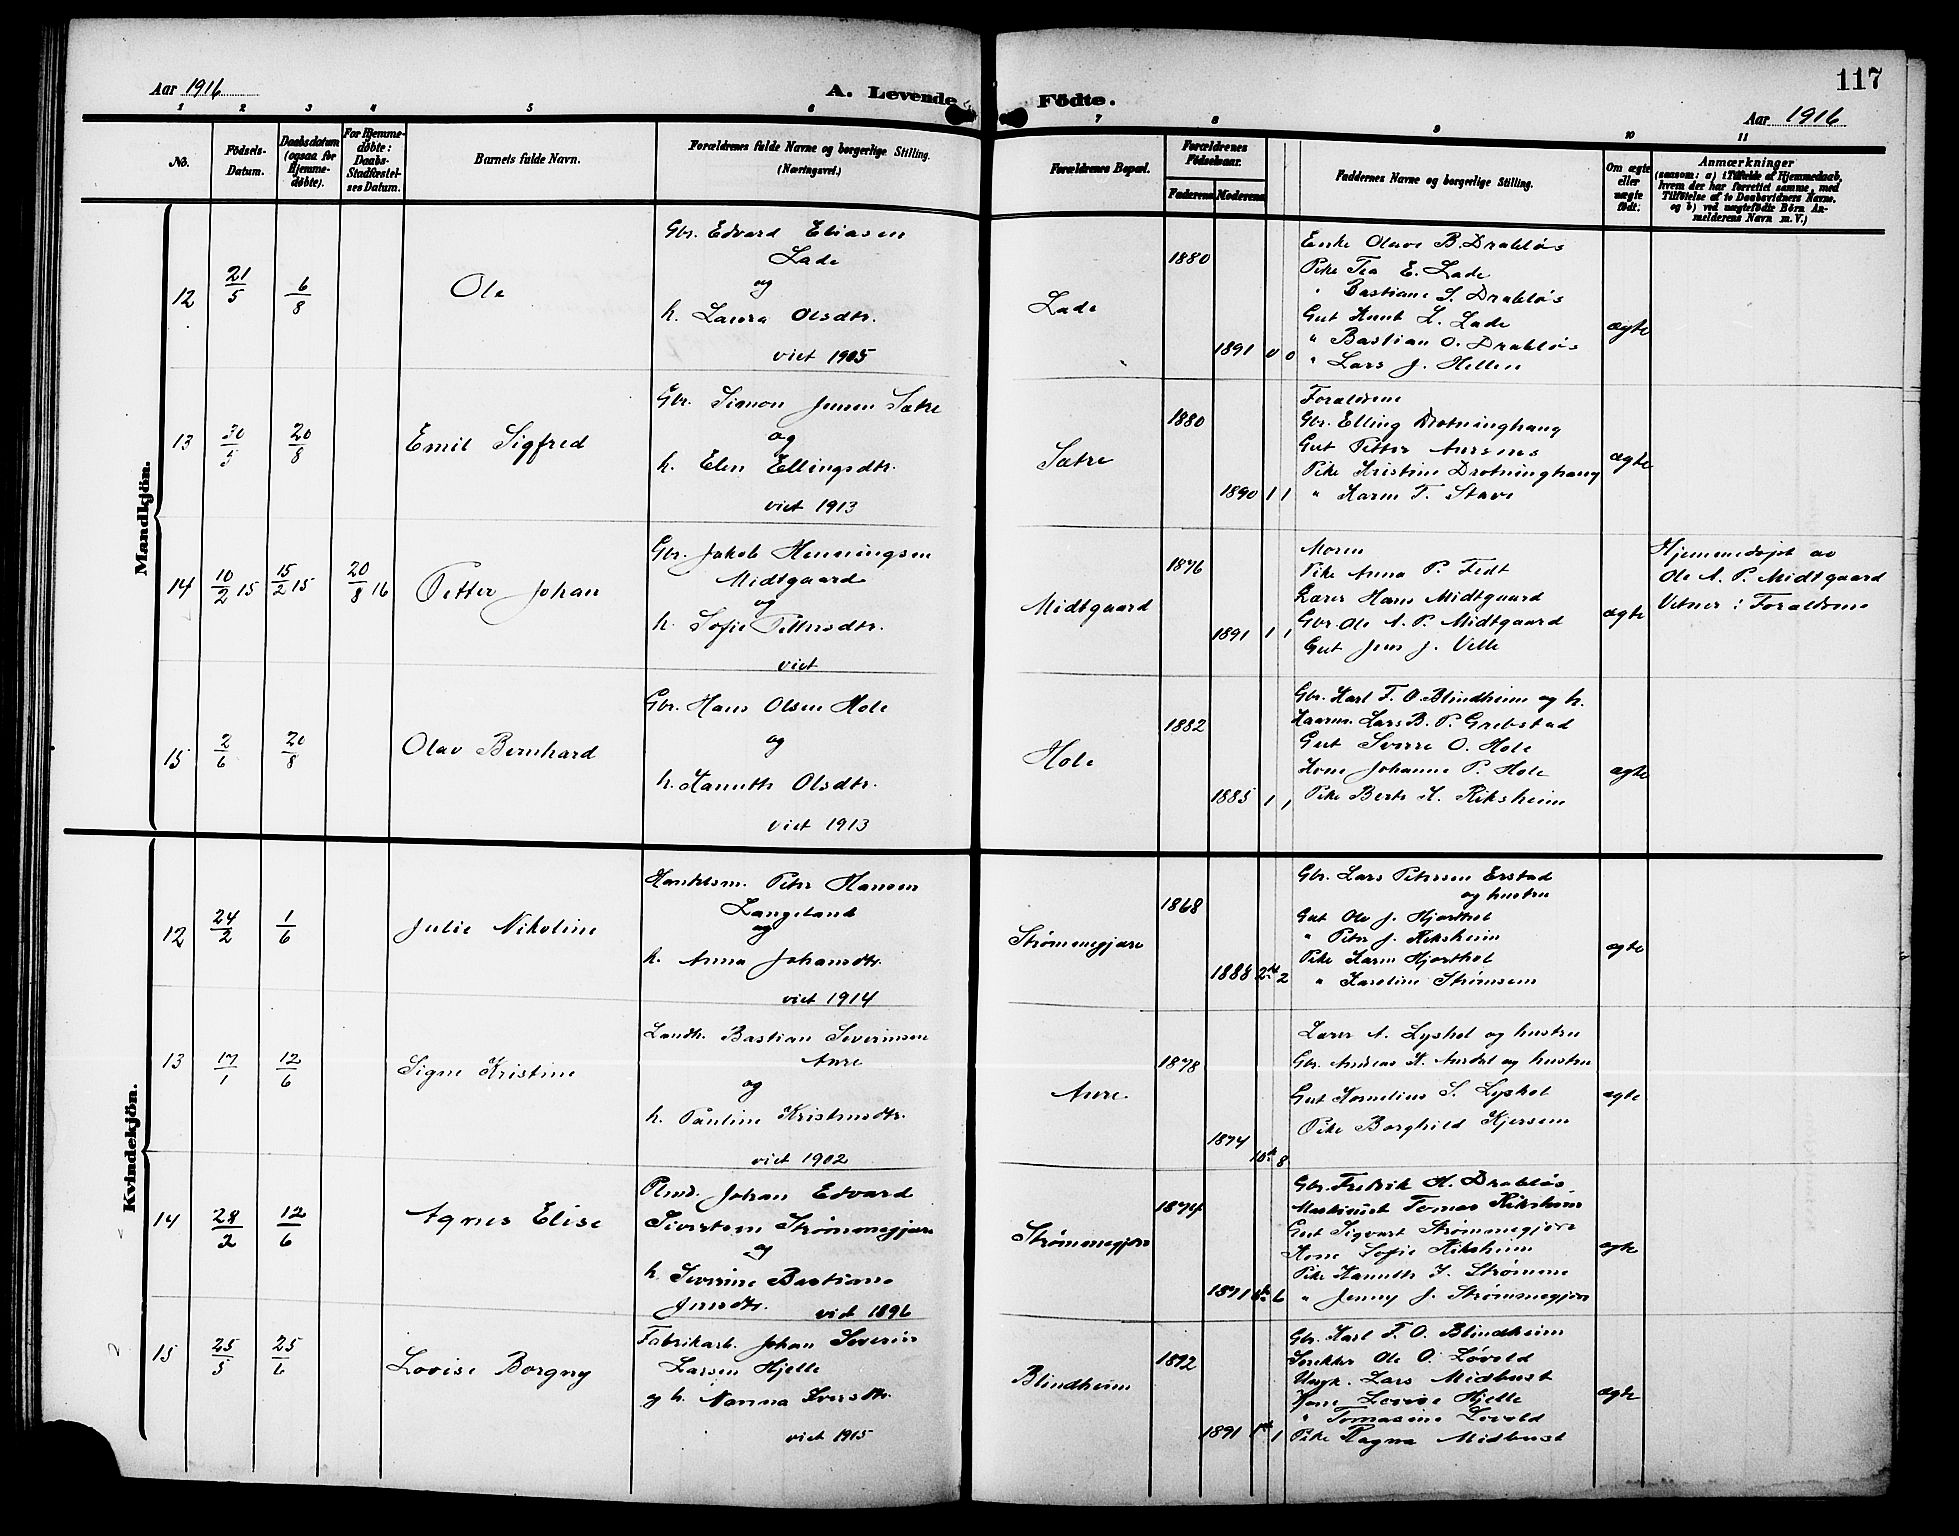 117
Aar 1916
A. Levende Födte.
Aar 1916
1 2 3 4 5 6 7 8 9 10 11
No.
Födsels-Datum.
Daabsdatum (ogsaa for Hjemmedøbte).
For Hjemmedøbte: Daabs-Stadfæstelses Datum.
Barnets fulde Navn.
Forældrenes fulde Navne og borgerlige Stilling.
(Næringsvei.)
Forældrenes Bopæl.
Forældrenes Födselsaar.
Faderens Moderens
Faddernes Navne og borgerlige Stilling.
Om ægte eller uægte født.
Anmærkninger
(saasom: a) i Tilfælde af Hjemmedaab, hvem der har forrettet samme, med Tilföielse af to Daabsvidners Navne. og b) ved uægtefödte Börn Anmelderens Navn m. V.)
Mandkjön.
12 21/5 6/8 Ole
Gbr. Edvard Eliasen
Lade
og
h. Laura Olsdtr.
viet 1905
Lade
1880
1891 0 0
Enke Olave B. Drabløs
Pike Tea E. Lade
" Bastiane S. Drabløs
Gut Knut L. Lade
" Bastian O. Drabløs
" Lars J. Hellen
ægte
13 30/5 20/8 Emil Sigfred
Gbr. Simon Jensen Sætre
og
h. Elen Ellingsdtr.
viet 1913
Sætre
1880
1890 1 1
Forældrene
Gbr. Elling Drotninghaug
Gut Petter Aursnes
Pike Kristine Drotninghaug
" Karen T. Stave
ægte
14 10/2 15 15/2 15 20/8 16 Petter Johan
Gbr. Jakob Henningsen
Midtgaard
og
h. Sofie Pettersdtr.
viet
Midtgaard
1876
1891 1 1
Moren
Pike Anna P. Fedt
Lærer Hans Midtgaard
Gbr. Ole A. P. Midtgaard
Gut Jens J. Velle
ægte
Hjemmedøpt av
Ole A. P. Midtgaard
Vitner: Forældrene
15 2/6 20/8 Olav Bernhard
Gbr. Hans Olsen Hole
og
h. Hanette Olsdtr.
viet 1913
Hole
1882
1885 1 1
Gbr. Karl F. O. Blindheim og h.
Lars B. P. Grebstad
Gut Sverre O. Hole
Kone Johanne P. Hole
Pike Berte K. Riksheim
ægte
Kvindekjön.
12 24/2 1/6 Julie Nikoline
Handelsm. Peter Hansen
Langeland
og
h. Anna Johansdtr.
viet 1914
Strømmegjære
1868
1888 2 2
Gbr. Lars Petersen Erstad
og hustru
Gut Ole J. Hjorthol
" Peter J. Riksheim
Pike Karen Hjorthol
" Karoline Strømsem
ægte
13 17/1 12/6 Signe Kristine
Landh. Bastian Severinsen
Aure
og
h. Pauline Kristensdtr.
viet 1902
Aure
1878
1874
8
Lærer A. Lyshol og hustru
Gbr. Andreas K. Aurdal og hustru
Gut Kornelius S. Lyshol
Pike Borghild Hjersem
ægte
14 28/2 12/6 Agnes Elise
Johan Edvard
Sivertsen Strømmegjære
og
h. Severine Bastiane
Jensdtr. viet 1896
Strømmegjære
1874
1871 6
Gbr. Fredrik H. Drabløs
Maskinist Tomas Riksheim
Gut Sigvart Strømmegjære
Kone Sofie Riksheim
Pike Hanette J. Strømme
" Jenny J. Strømmegjære
ægte
15 25/5 25/6 Lovise Borgny
Fabrikarb. Johan Severin
Larsen Hjelle
og h. Nanna Iversdtr.
viet 1915
Blindheim
1892
1891 1
Gbr. Karl F. O. Blindheim
Snekker Ole O. Løvold
Ungk. Lars Midbust
Kone Lovise Hjelle
" Tomasine Løvold
Pike Ragna Midbust
ægte